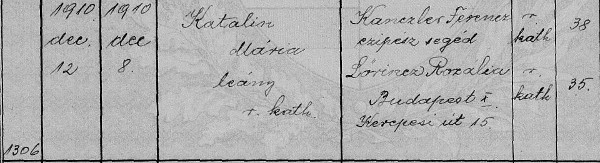 1910. 1910 Katalin Kanczler Ferencz r. 38
dec. dec Mária czipész segéd kath
12 8. leány Lőrincz Rozália r. 35.
r. kath. Budapest X. kath
Kerepesi út 15
1306